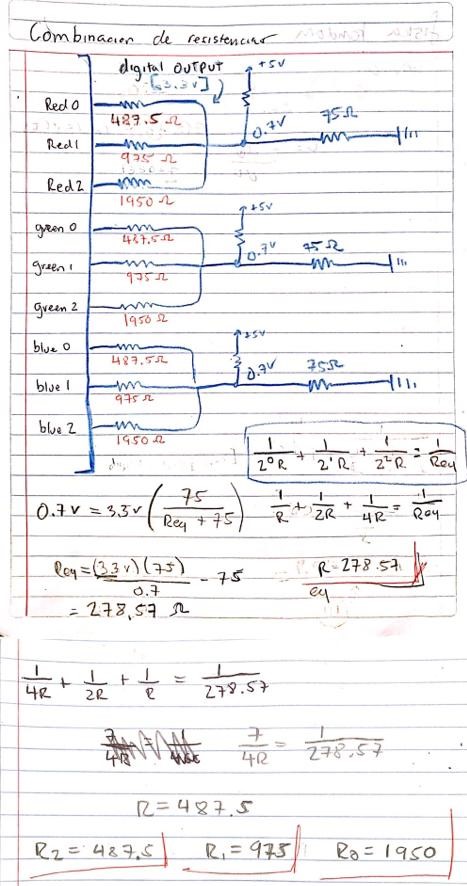 Combinacion de resistencias
digital OUTPUT
[3.3v]
+5v
Red 0
487.5 Ω
0.7v
75Ω
Red 1
975 Ω
Red 2
1950 Ω
+5v
green 0
487.5 Ω
0.7v
75 Ω
green 1
975 Ω
green 2
1950 Ω
+5v
blue 0
487.5 Ω
0.7v
75Ω
blue 1
975 Ω
blue 2
1950 Ω
1/2⁰R + 1/2¹R + 1/2²R = 1/Req
0.7v = 3.3v (75/Req + 75)
1/R + 1/2R + 1/4R = 1/Req
Req = (3.3v)(75)/0.7 - 75
R = 278.57
eq
= 278,57 Ω
1/4R + 1/2R + 1/R = 1/278.57
7/4R = 1/278.57
R = 487.5
R₂ = 487.5 R₁ = 975 R₀ = 1950